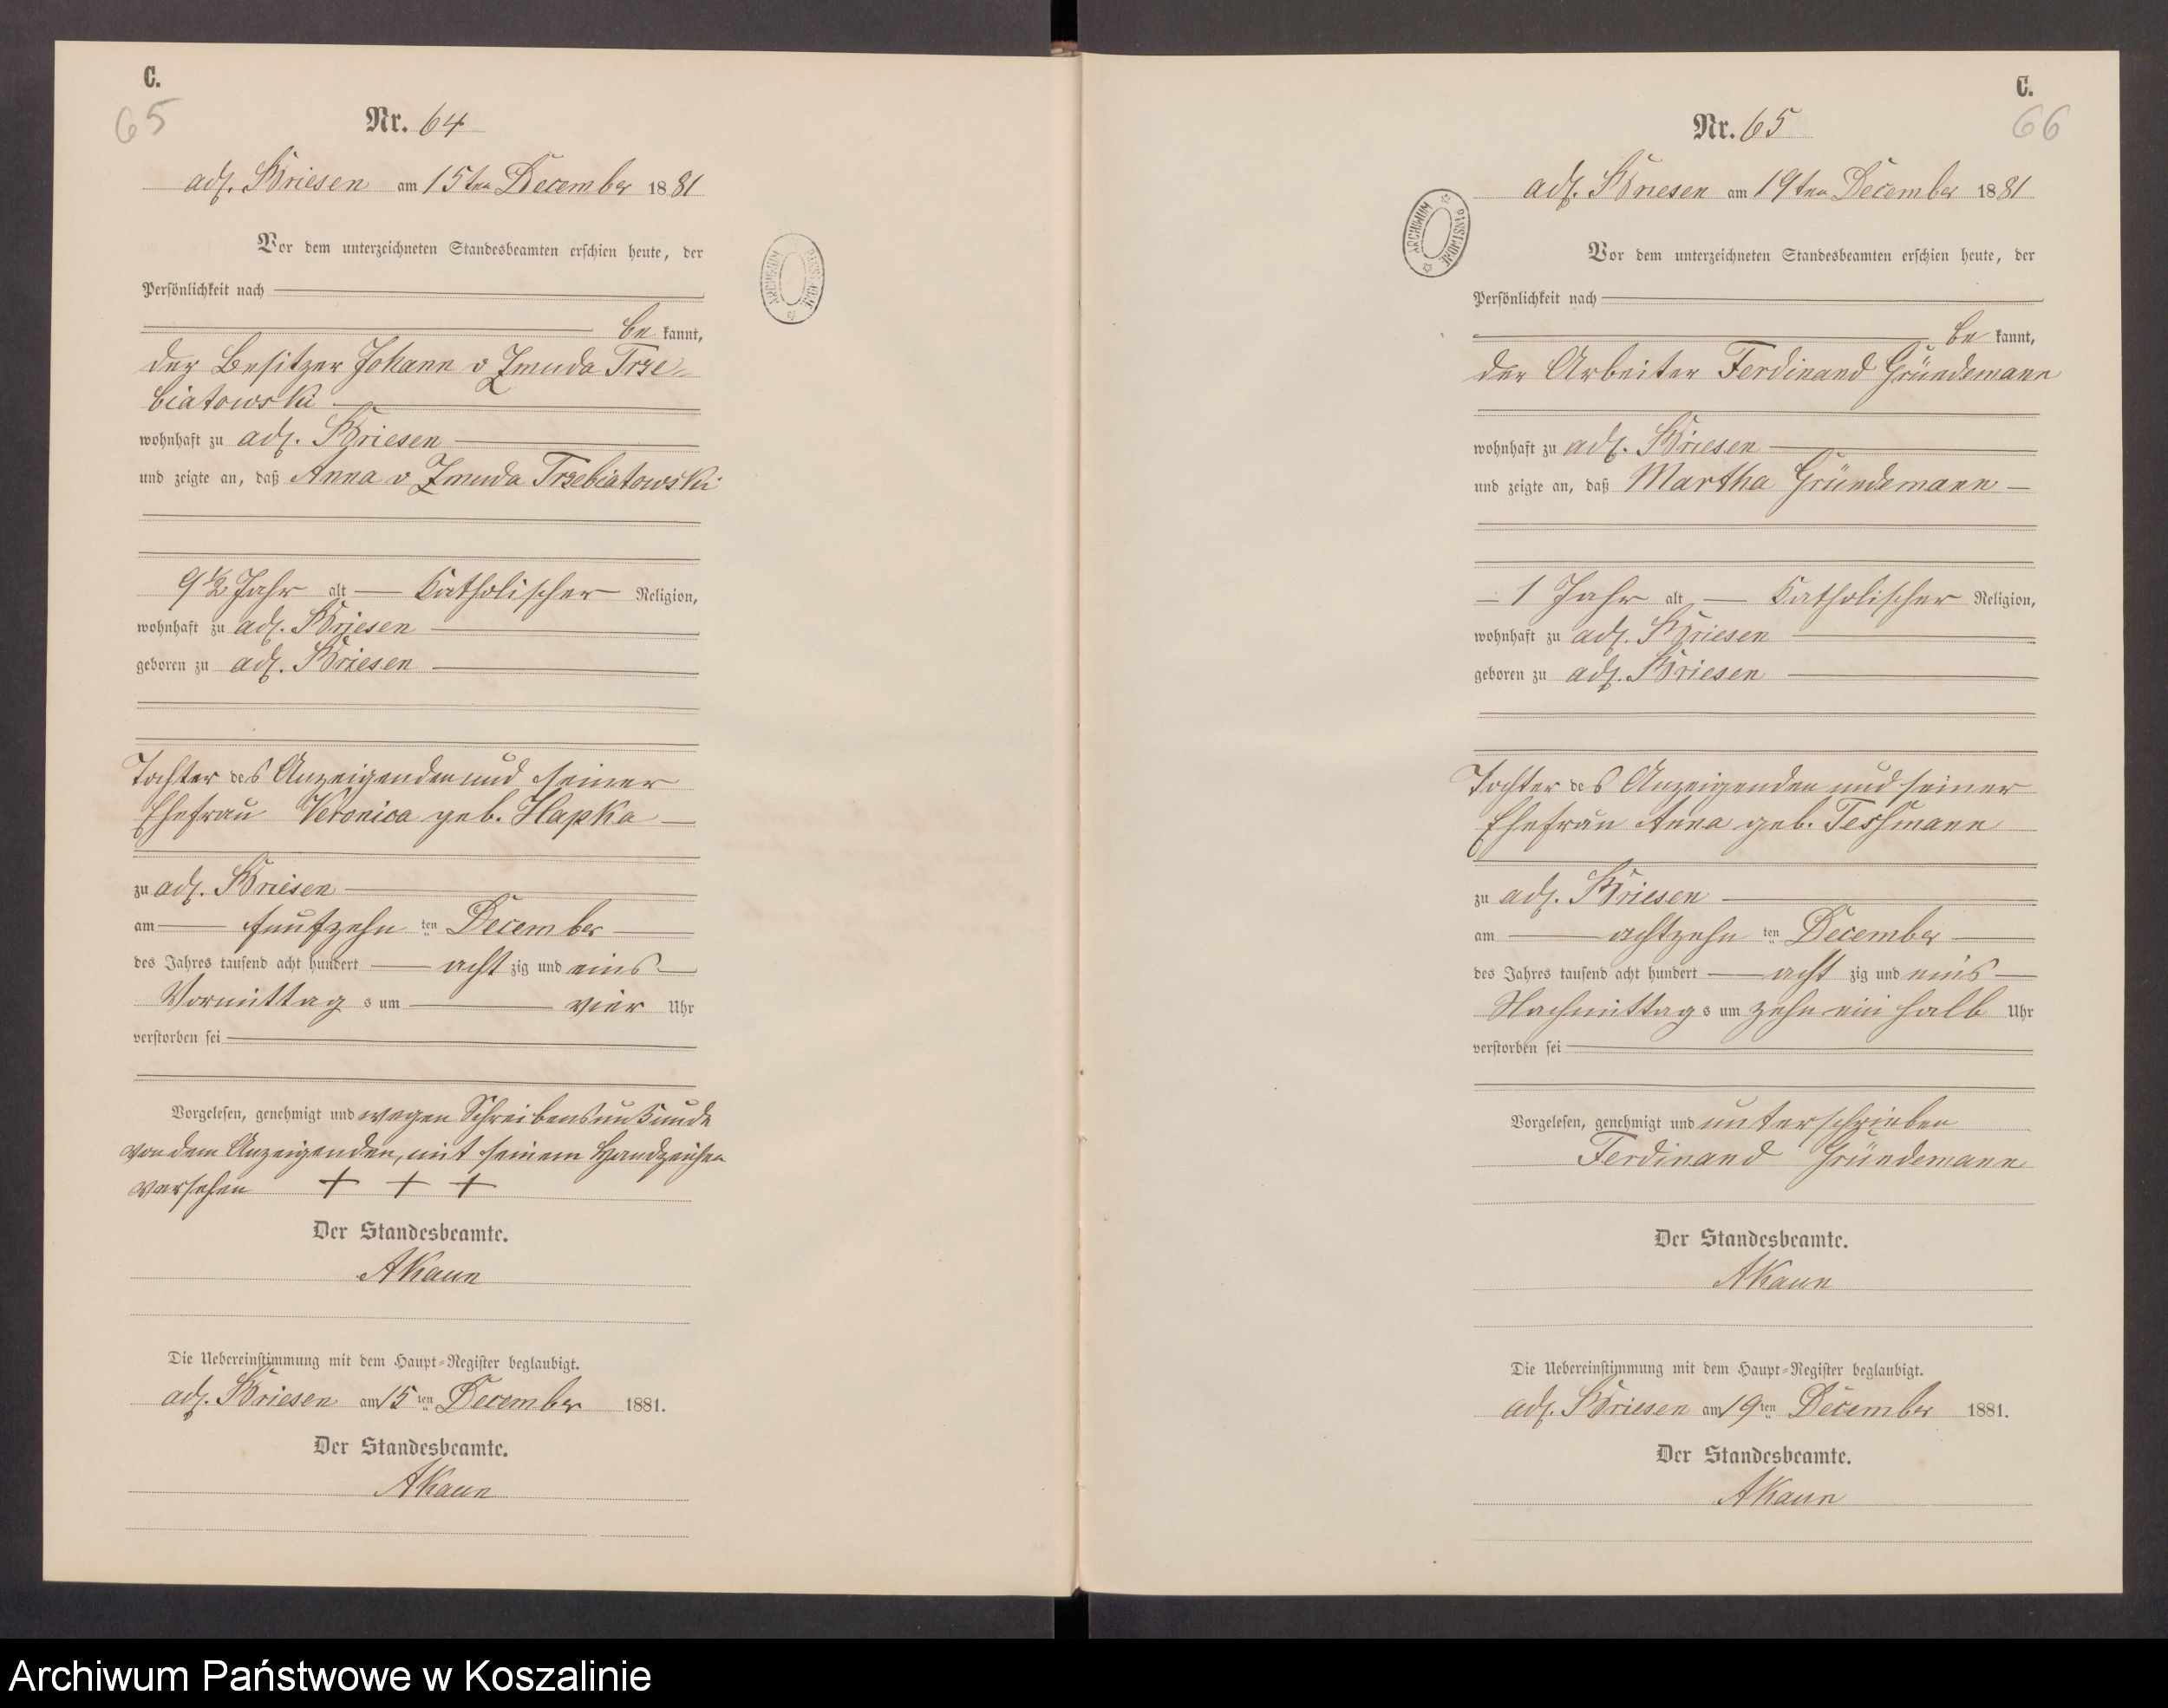 C.
65
Nr. 64
adl. Briesen am 15ten December 1881
Vor dem unterzeichneten Standesbeamten erschien heute, der
Persönlichkeit nach
be kannt,
der Besitzer Johann v Zmuda Trze-
biatowski
wohnhaft zu adl. Briesen
und zeigte an, daß Anna v Zmuda Trzebiatowski
9 1/2 Jahr alt Katholischer Religion,
wohnhaft zu adl. Briesen
geboren zu adl. Briesen
Tochter des Anzeigenden und seiner
Ehefrau Veronica geb. Hapka
zu adl. Briesen
am funfzehn ten December
des Jahres tausend acht hundert acht zig und eins
Vormittag s um vier Uhr
verstorben sei
Vorgelesen, genehmigt und wegen Schreibensunkunde
von dem Anzeigenden, mit seinem Handzeichen
versehen + + +
Der Standesbeamte.
AKaun
Die Uebereinstimmung mit dem Haupt-Register beglaubigt.
adl. Briesen am 15 ten December 1881.
Der Standesbeamte.
AKaun
ARCHIWUM PAŃSTWOWE
C.
66
Nr. 65
adl. Briesen am 19ten December 1881
ARCHIWUM PAŃSTWOWE
Vor dem unterzeichneten Standesbeamten erschien heute, der
Persönlichkeit nach
be kannt,
der Arbeiter Ferdinand Gründemann
wohnhaft zu adl. Briesen
und zeigte an, daß Martha Gründemann
1 Jahr alt Katholischer Religion,
wohnhaft zu adl. Briesen
geboren zu adl. Briesen
Tochter des Anzeigenden und seiner
Ehefrau Anna geb. Tessmann
zu adl. Briesen
am achtzehn ten December
des Jahres tausend acht hundert acht zig und eins
Nachmittag s um zehn ein halb Uhr
verstorben sei
Vorgelesen, genehmigt und unterschrieben
Ferdinand Gründemann
Der Standesbeamte.
AKaun
Die Uebereinstimmung mit dem Haupt-Register beglaubigt.
adl. Briesen am 19 ten December 1881.
Der Standesbeamte.
AKaun
Archiwum Państwowe w Koszalinie